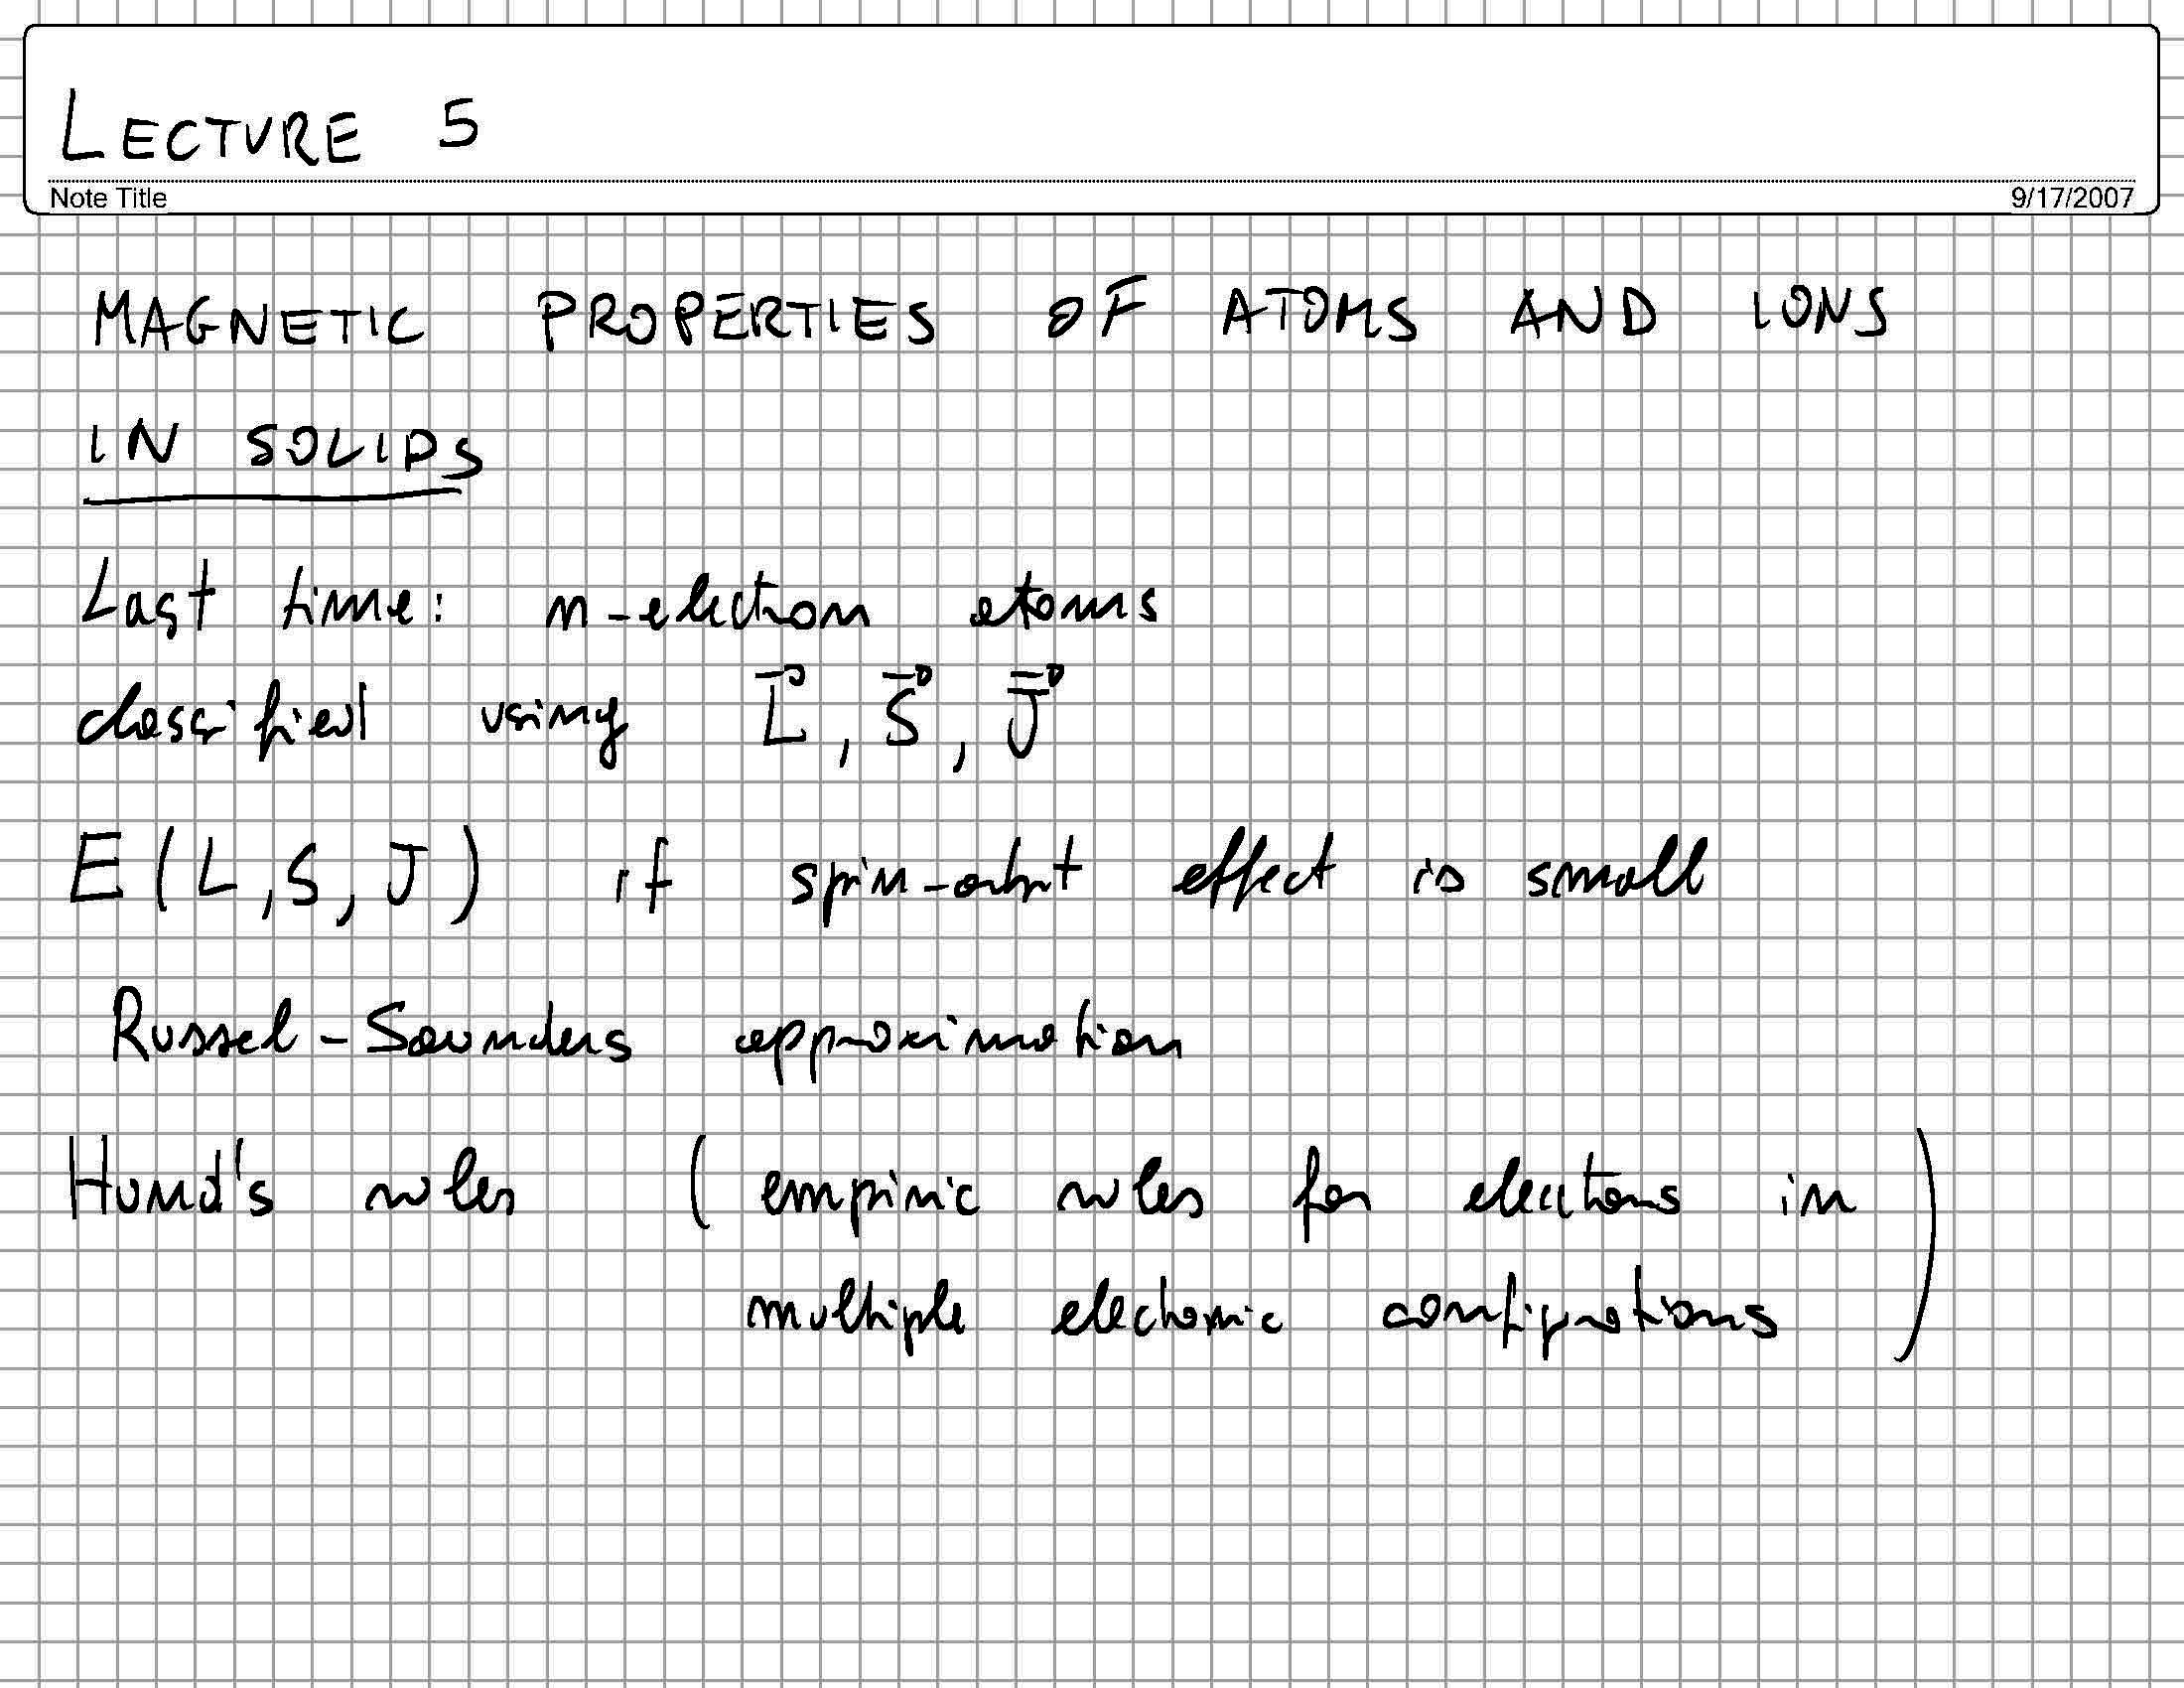 LECTURE 5
Note Title 9/17/2007
MAGNETIC PROPERTIES OF ATOMS AND IONS
IN SOLIDS
Last time: n-electron atoms
classified using L⃗, S⃗, J⃗
E(L,S,J) if spin-orbit effect is small
Russel-Saunders approximation
Hund's rules (empiric rules for electrons in
multiple electronic configurations)